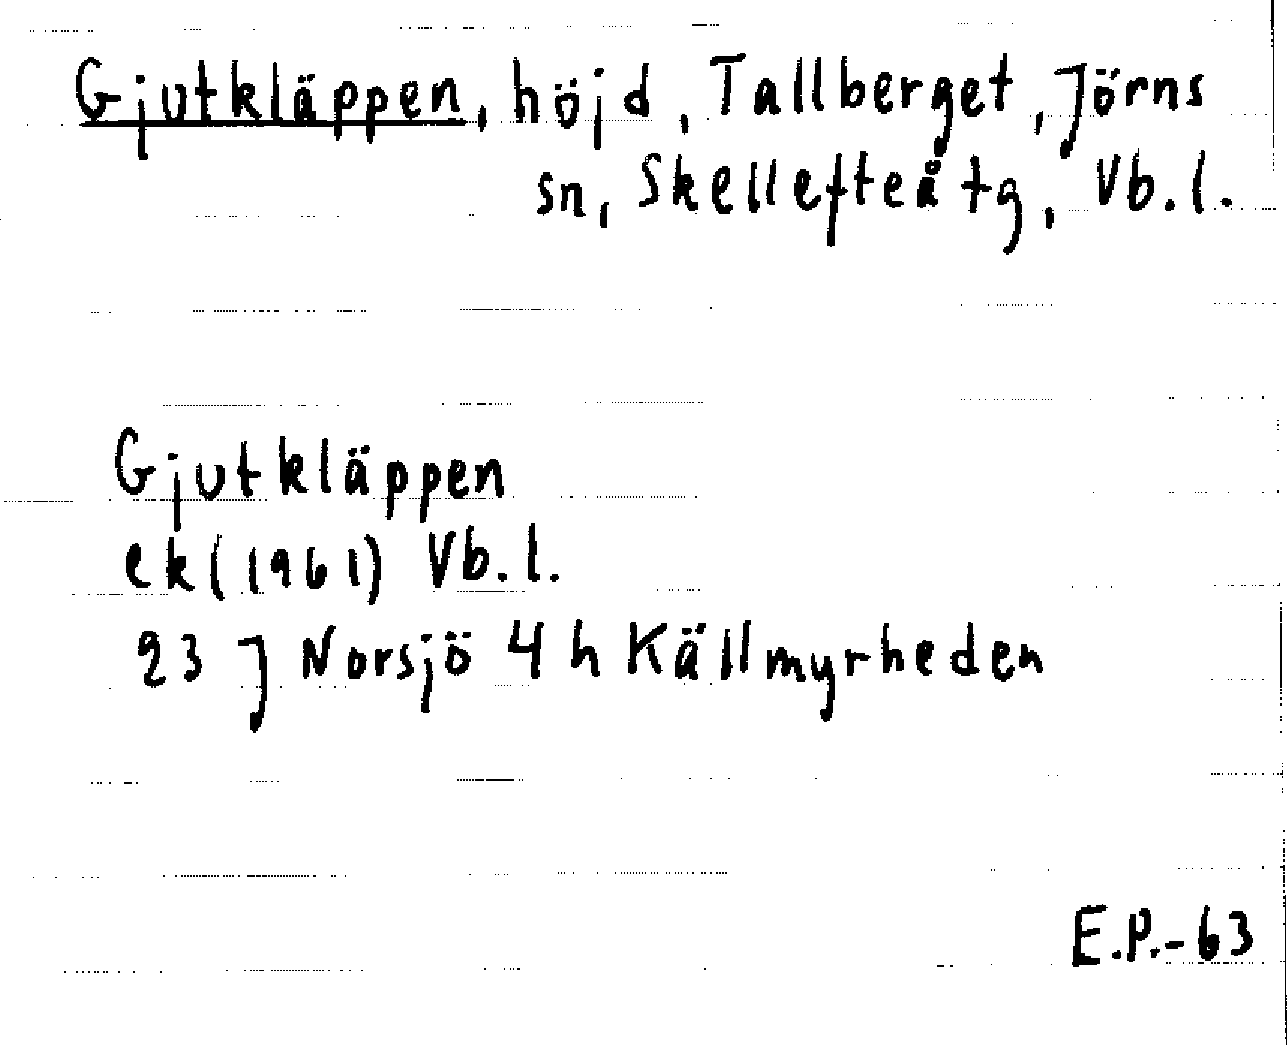 Gjutkläppen, höjd, Tallberget, Jörns
sn, Skellefteå tg, Vb.l.
Gjutkläppen
ek (1961) Vb.l.
23 J Norsjö 4 h Källmyrheden
E.P.-63